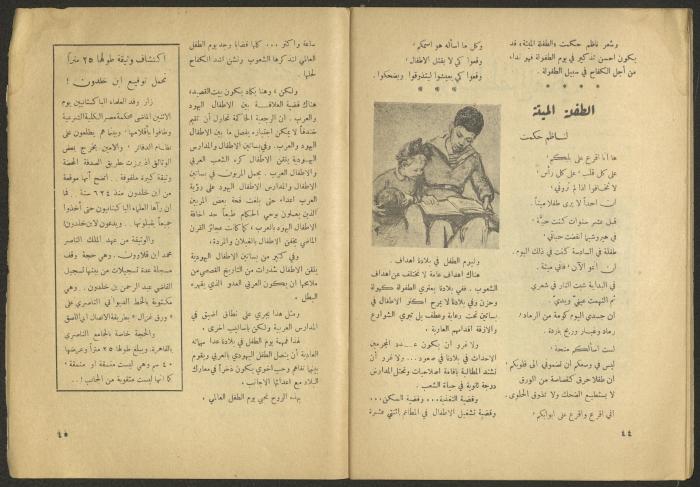 وشعر ناظم حكمت «الطفلة الميتة» قد
يكون احسن تذكير في يوم الطفولة فهو نداء
من أجل الكفاح في سبيل الطفولة .
* * * *
الطفلة الميتة
لناظم حكمت
ها أنا اقرع على بابكم ،
على كل قلب ، على كل رأس ،
لا تخافوا اذا لم تروني ،
ان احداً لا يرى طفلا ميتاً .
قبل عشر سنوات كنت حيّة ،
في هيروشيما انقضت حياتي ،
طفلة في السادسة كنت في ذلك اليوم .
لن أنمو الآن ، فاني ميتة .
في البداية شبت النار في شعري
ثم التهمت عينيّ ويديّ .
ان جسدي اليوم كومة من الرماد ،
رماد وغبار وريح باردة .
لست اسألكم منحة ،
ليس في وسعكم ان تضموني الى قلوبكم ،
ان طفلا حرق كقصاصة من الورق
لا يستطيع الضحك ولا تذوق الحلوى .
اني اقرع واقرع على ابوابكم ،
وكل ما اسأله هو اسمكم ،
وقعوا كي لا يقتل الاطفال ،
وقعوا كي يعيشوا ليتذوقوا ويضحكوا .
* * * *
وليوم الطفل في بلادنا اهداف .
هناك اهداف عامة لا تختلف عن اهداف
الشعوب . ففي بلادنا يعتري الطفولة كهولة
وحزن وفي بلادنا لا يمرح اكثر الاطفال في
بساتين تحت رعاية وعطف بل تبري الشوارع
والازقة اقدامهم العارية .
ولا غرو ان يكون عدد المجرمين
الاحداث في بلادنا في صعود ... ولا غرو أن
نشتد المطالبة بإقامة اصلاحيات وتحتل المدارس
درجة ثانوية في حياة الشعب .
وقضية التغذية ... وقضية السكن ...
وقضية تشغيل الاطفال في المطاعم اثنتي عشرة
٤٤
ساعة واكثر ... كلها قضايا وجد يوم الطفل
العالمي لتذكرها الشعوب وتشن اشد الكفاح
لحلها .
ولكن ، وهنا يكاد يكون بيت القصيد ،
هناك قضية العلاقة بين الاطفال اليهود
والعرب . ان الرجعة الحاكمة تحاول أن تقيم
خندقاً لا يمكن اجتيازه يفصل ما بين الاطفال
اليهود والعرب . وفي بساتين الاطفال والمدارس
اليهودية يلقن الاطفال كره الشعب العربي
والاطفال العرب . يحمل المربون في بساتين
الاطفال والمدارس الاطفال اليهود على رؤية
العرب اعداء حتى بلغت قحة بعض المربين
الذين يعملون بوحي الحكام طبعاً حد اخافة
الاطفال اليهود بالعرب ، كما كانت عجائز القرن
الماضي تخيفن الاطفال بالغيلان والمردة .
وفي كثير من بساتين الاطفال اليهودية
يلقن الاطفال شذرات من التاريخ القصصي من
ملامحها ان يكون العربي العدو الذي يقهره
البطل .
ومثل هذا يجري على نطاق اضيق في
المدارس العربية ولكن باساليب اخرى .
لهذا فمهمة يوم الطفل في بلادنا عدا مهماته
العادية أن يتصل الطفل اليهودي بالعربي ويقوم
بينها تفاهم وحب اخوي يكون ذخراً في معارك
البلاد مع اعدائها الاجانب .
بهذه الروح نحيي يوم الطفل العالمي .
اكتشاف وثيقة طولها ٢٥ متراً
تحمل توقيع ابن خلدون !
زار وفد العلماء الباكستانيين يوم
الاثنين الماضي محكمة مصر الكلية الشرعية
وطافوا بأقلامها ، وبينما هم يطلعون على
نظام الدفاتر ، والامين يخرج بعض
الوثائق اذ برزت بطريق الصدفة المحضة
وثيقة كبيرة ملفوفة . اتضح أنها موقعة
من ابن خلدون منذ ٦٢٤ سنة . فما
ان رآها العلماء الباكستانيون حتى أخذوا
جميعاً يقبلونها .. ويدعون لابن خلدون !
والوثيقة من عهد الملك الناصر
محمد ابن قلاوون . وهي حجة وقف
مسجلة عدة تسجيلات من بينها تسجيل
القاضي عبد الرحمن بن خلدون . وهي
مكتوبة بالخط الديواني الناصري على
« ورق غزال » بطريقة الالصاق
والحجة خاصة بالجامع الناصري
بالقاهرة . ويبلغ طولها ٢٥ متراً وعرضها
٤٠ سم وهي ليست ممسوحة او منسقة .
كما انها ليست مثقوبة من الجانب ! ..
٤٥